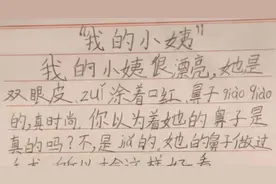 "我的小姨"
我的小姨很漂亮,她是
双眼皮,zuǐ涂着口红,鼻子qiào qiào
的,真时尚。你以为着她的鼻子是
真的吗?不,是jiǎ的,她的鼻子做过
所以才会这样好看